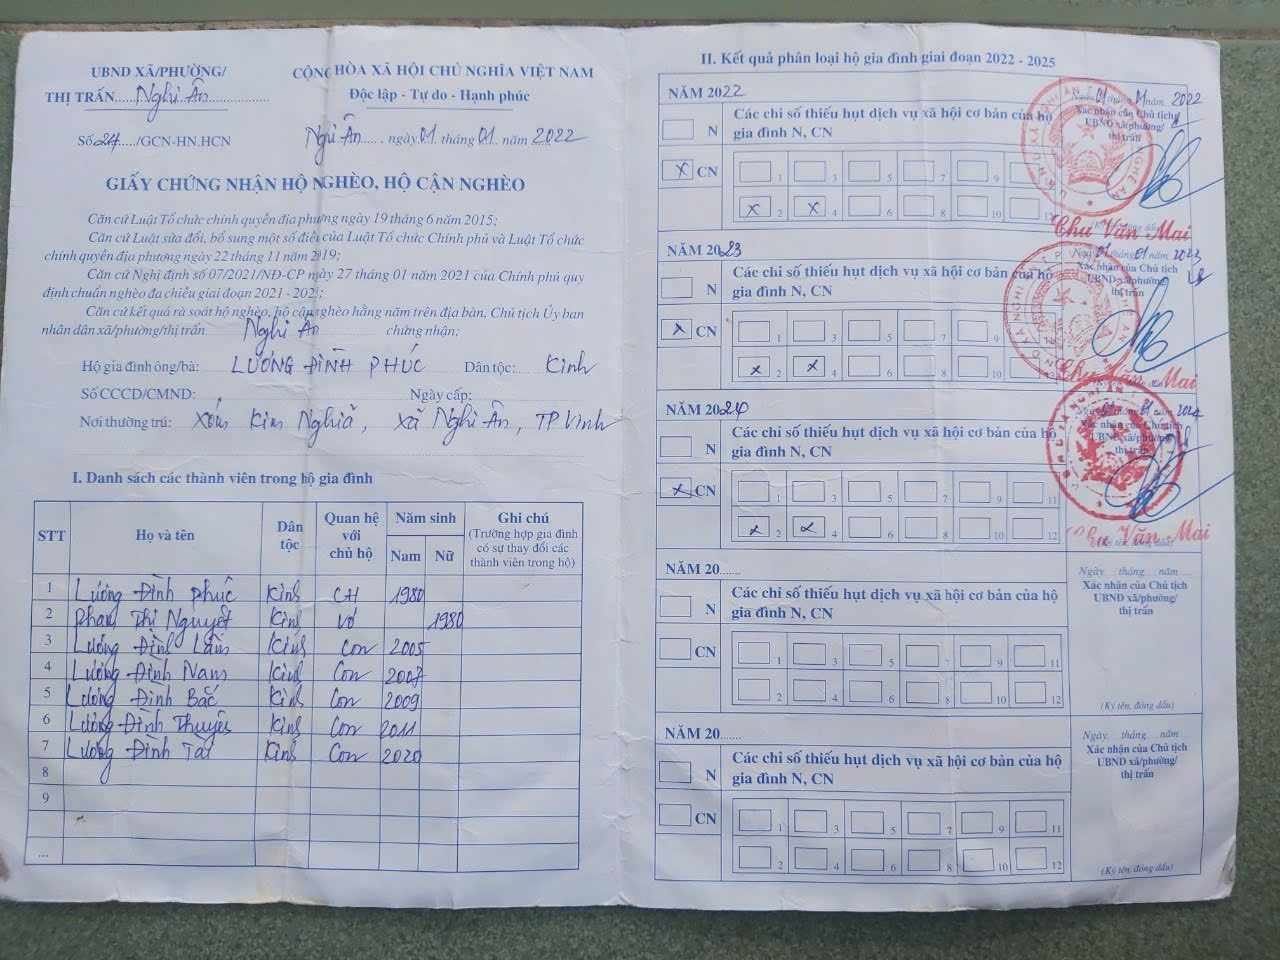 UBND XÃ/PHƯỜNG/
THỊ TRẤN.....Nghi Ân.....................
CỘNG HÒA XÃ HỘI CHỦ NGHĨA VIỆT NAM
Độc lập - Tự do - Hạnh phúc
Số 24...../GCN-HN.HCN
Nghi Ân....., ngày 01 tháng 01. năm 2022
GIẤY CHỨNG NHẬN HỘ NGHÈO, HỘ CẬN NGHÈO
Căn cứ Luật Tổ chức chính quyền địa phương ngày 19 tháng 6 năm 2015;
Căn cứ Luật sửa đổi, bổ sung một số điều của Luật Tổ chức Chính phủ và Luật Tổ chức
chính quyền địa phương ngày 22 tháng 11 năm 2019;
Căn cứ Nghị định số 07/2021/NĐ-CP ngày 27 tháng 01 năm 2021 của Chính phủ quy
định chuẩn nghèo đa chiều giai đoạn 2021 - 2025;
Căn cứ kết quả rà soát hộ nghèo, hộ cận nghèo hằng năm trên địa bàn, Chủ tịch Ủy ban
nhân dân xã/phường/thị trấn Nghi Ân chứng nhận;
Hộ gia đình ông/bà: LƯƠNG ĐÌNH PHÚC Dân tộc: Kinh
Số CCCD/CMND: Ngày cấp:
Nơi thường trú: Xóm Kim Nghĩa, Xã Nghi Ân, TP Vinh
I. Danh sách các thành viên trong hộ gia đình
STT Họ và tên Dân tộc Quan hệ với chủ hộ Năm sinh Nam Nữ Ghi chú (Trường hợp gia đình có sự thay đổi các thành viên trong hộ)
1 Lương Đình Phúc Kinh CH 1980
2 Phan Thị Nguyệt Kinh Vợ 1980
3 Lương Đình Lâm Kinh Con 2005
4 Lương Đình Nam Kinh Con 2007
5 Lương Đình Bắc Kinh Con 2009
6 Lương Đình Thuyên Kinh Con 2011
7 Lương Đình Tài Kinh Con 2020
8
9
...
II. Kết quả phân loại hộ gia đình giai đoạn 2022 - 2025
NĂM 2022
N
x CN
Các chỉ số thiếu hụt dịch vụ xã hội cơ bản của hộ
gia đình N, CN
1 3 5 7 9
x 2 x 4 6 8 10 12
Ngày 01 tháng 01 năm 2022
Xác nhận của Chủ tịch
UBND xã/phường/
thị trấn
Chu Văn Mai
NĂM 2023
N
x CN
Các chỉ số thiếu hụt dịch vụ xã hội cơ bản của hộ
gia đình N, CN
1 3 5 7 9
x 2 x 4 6 8 10 12
Ngày 01 tháng 01 năm 2023
Xác nhận của Chủ tịch
UBND xã/phường/
thị trấn
Chu Văn Mai
NĂM 2024
N
x CN
Các chỉ số thiếu hụt dịch vụ xã hội cơ bản của hộ
gia đình N, CN
1 3 5 7 9 11
x 2 x 4 6 8 10 12
Ngày 01 tháng 01 năm 2024
Xác nhận của Chủ tịch
UBND xã/phường/
thị trấn
Chu Văn Mai
NĂM 20......
N
CN
Các chỉ số thiếu hụt dịch vụ xã hội cơ bản của hộ
gia đình N, CN
1 3 5 7 9 11
2 4 6 8 10 12
Ngày....tháng....năm ....
Xác nhận của Chủ tịch
UBND xã/phường/
thị trấn
(Ký tên, đóng dấu)
NĂM 20......
N
CN
Các chỉ số thiếu hụt dịch vụ xã hội cơ bản của hộ
gia đình N, CN
1 3 5 7 9 11
2 4 6 8 10 12
Ngày....tháng....năm ....
Xác nhận của Chủ tịch
UBND xã/phường/
thị trấn
(Ký tên, đóng dấu)